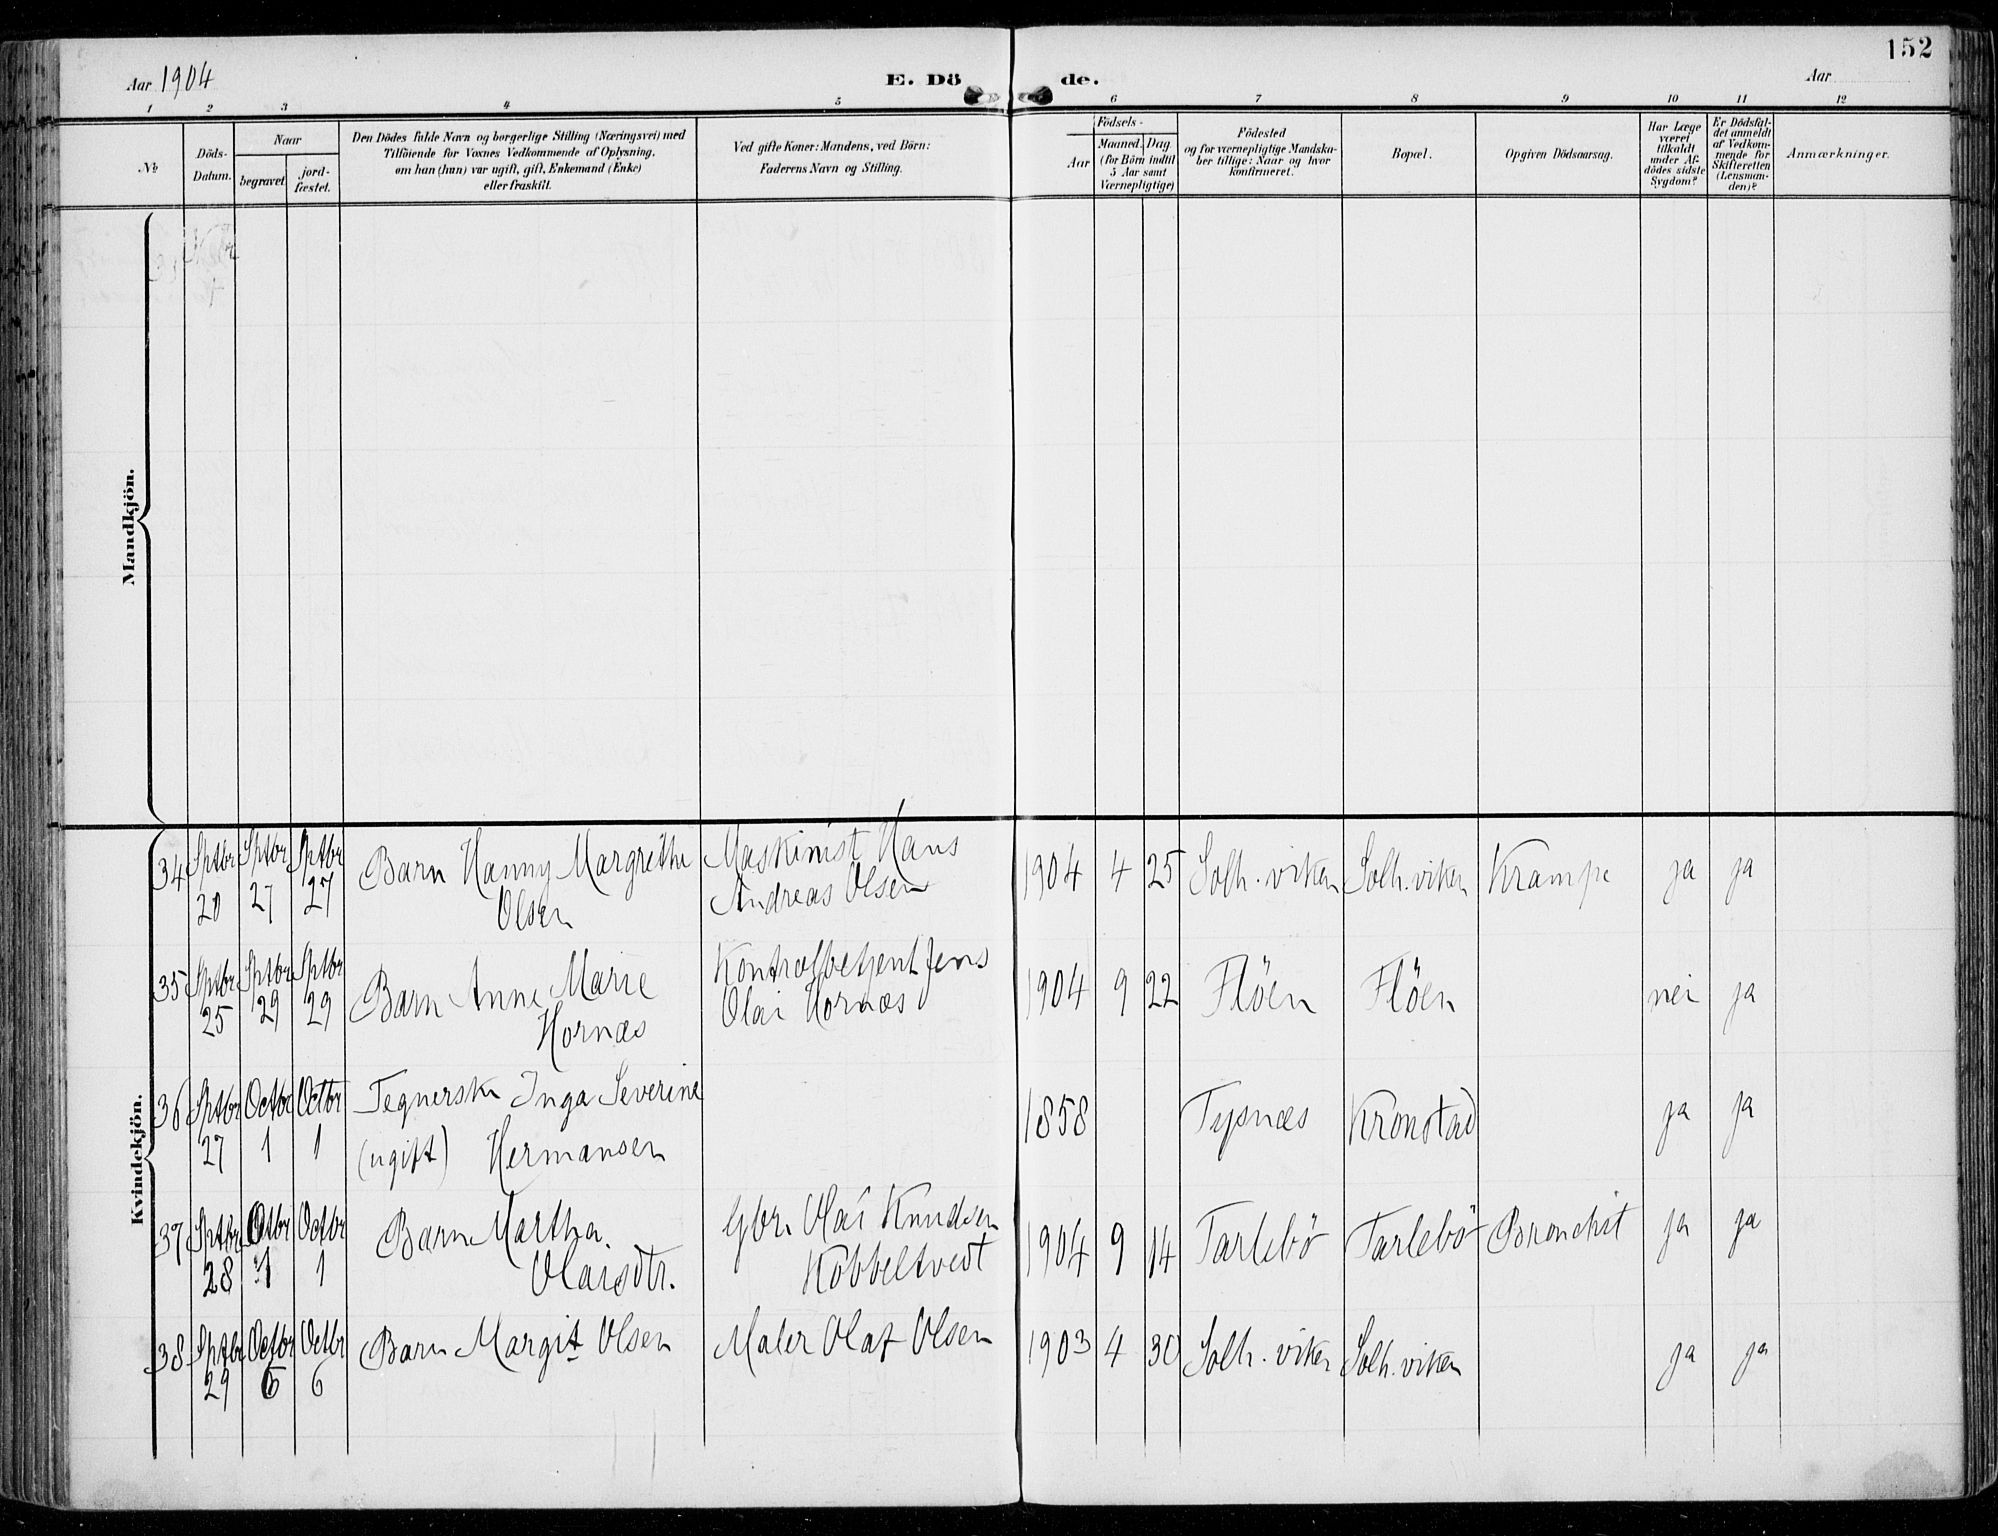 152
Aar 1904
E. Dö
de.
Aar
1 2 3 4 5 6 7 8 9 10 11 12
No
Döds-
Datum.
Naar
begravet.
jord-
fæstet.
Den Dödes fulde Navn og borgerlige Stilling (Næringsvei) med
Tilföiende for Voxnes Vedkommende af Oplysning.
om han (hun) var ugift, gift, Enkemand (Enke)
eller fraskilt.
Ved gifte Koner: Mandens, ved Börn:
Faderens Navn og Stilling.
Födsels-
Aar
Maaned. Dag.
(for Börn indtil
5 Aar samt
Værnepligtige)
Födested
og for værnepligtige Mandska-
ber tillige: Naar og hvor
konfirmeret.
Bopæl.
Opgiven Dödsaarsag.
Har Læge
været
tilkaldt
under Af-
dödes sidste
Sygdom?
Er Dödsfal-
det anmeldt
af Vedkom-
mende for
Skifteretten
(Lensman-
den)?
Anmærkninger.
Mandkjön.
Kvindekjön.
34 Sptbr Sptbr Sptbr Barn Hanny Margrethe Maskinist Hans 1904 4 25 Solh. viken Solh. viken Krampe ja ja
20 27 27 Olsen Andreas Olsen
35 Sptbr Sptbr Sptbr Barn Anne Marie Kontrolbetjent Jens 1904 9 22 Flöen Flöen nei ja
25 29 29 Hornæs Olai Hornæs
36 Sptbr Octbr Octbr Tegnerske Inga Severine 1858 Tysnæs Kronstad ja ja
27 1 1 (ugift) Hermansen
37 Sptbr Octbr Octbr Barn Martha Gbr. Olai Knudsen 1904 9 14 Tarlebö Tarlebö Bronchit ja ja
28 1 1 Olaisdtr. Kobbeltvedt
38 Sptbr Octbr Octbr Barn Margit Olsen Maler Olaf Olsen 1903 4 30 Solh. viken Solh. viken ja ja
29 6 6